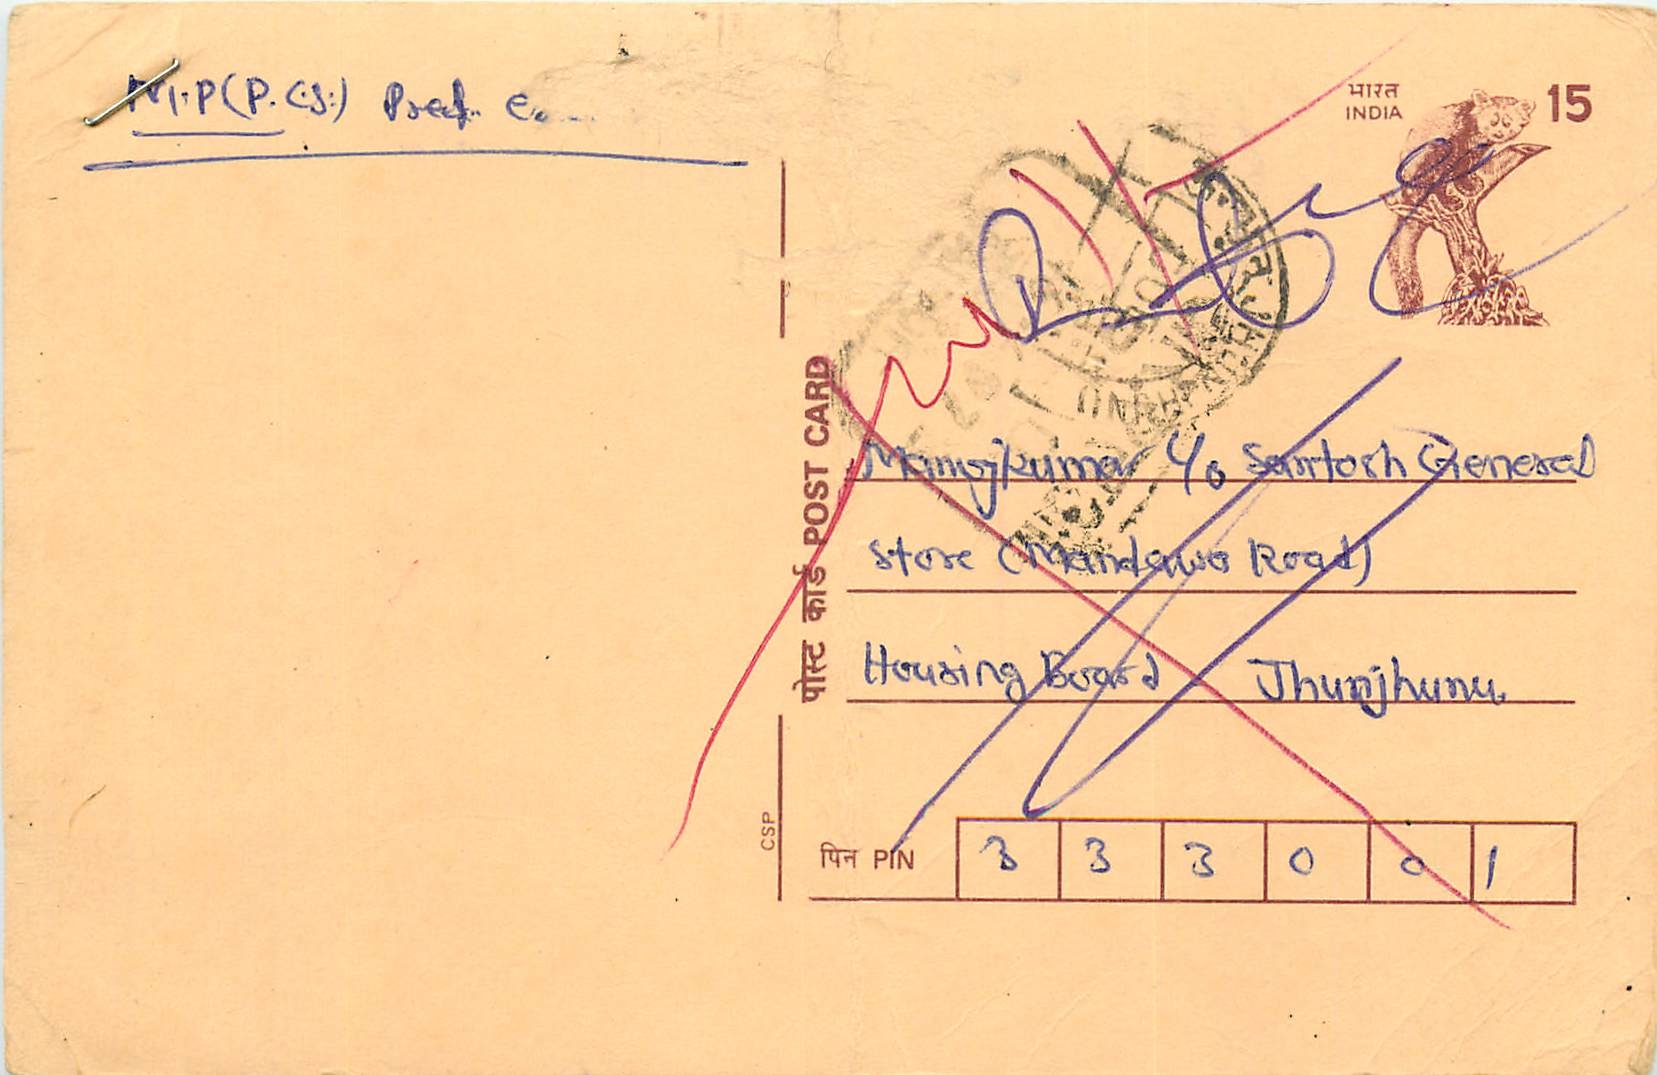 M.P (P.C.S.) Pref.
भारत
INDIA
15
JHUNJHUNU
पोस्ट कार्ड POST CARD
Manojkumar C/o Santosh General
Store (Mandawa Road)
Housing Board Jhunjhunu
CSP
पिन PIN 3 3 3 0 0 1